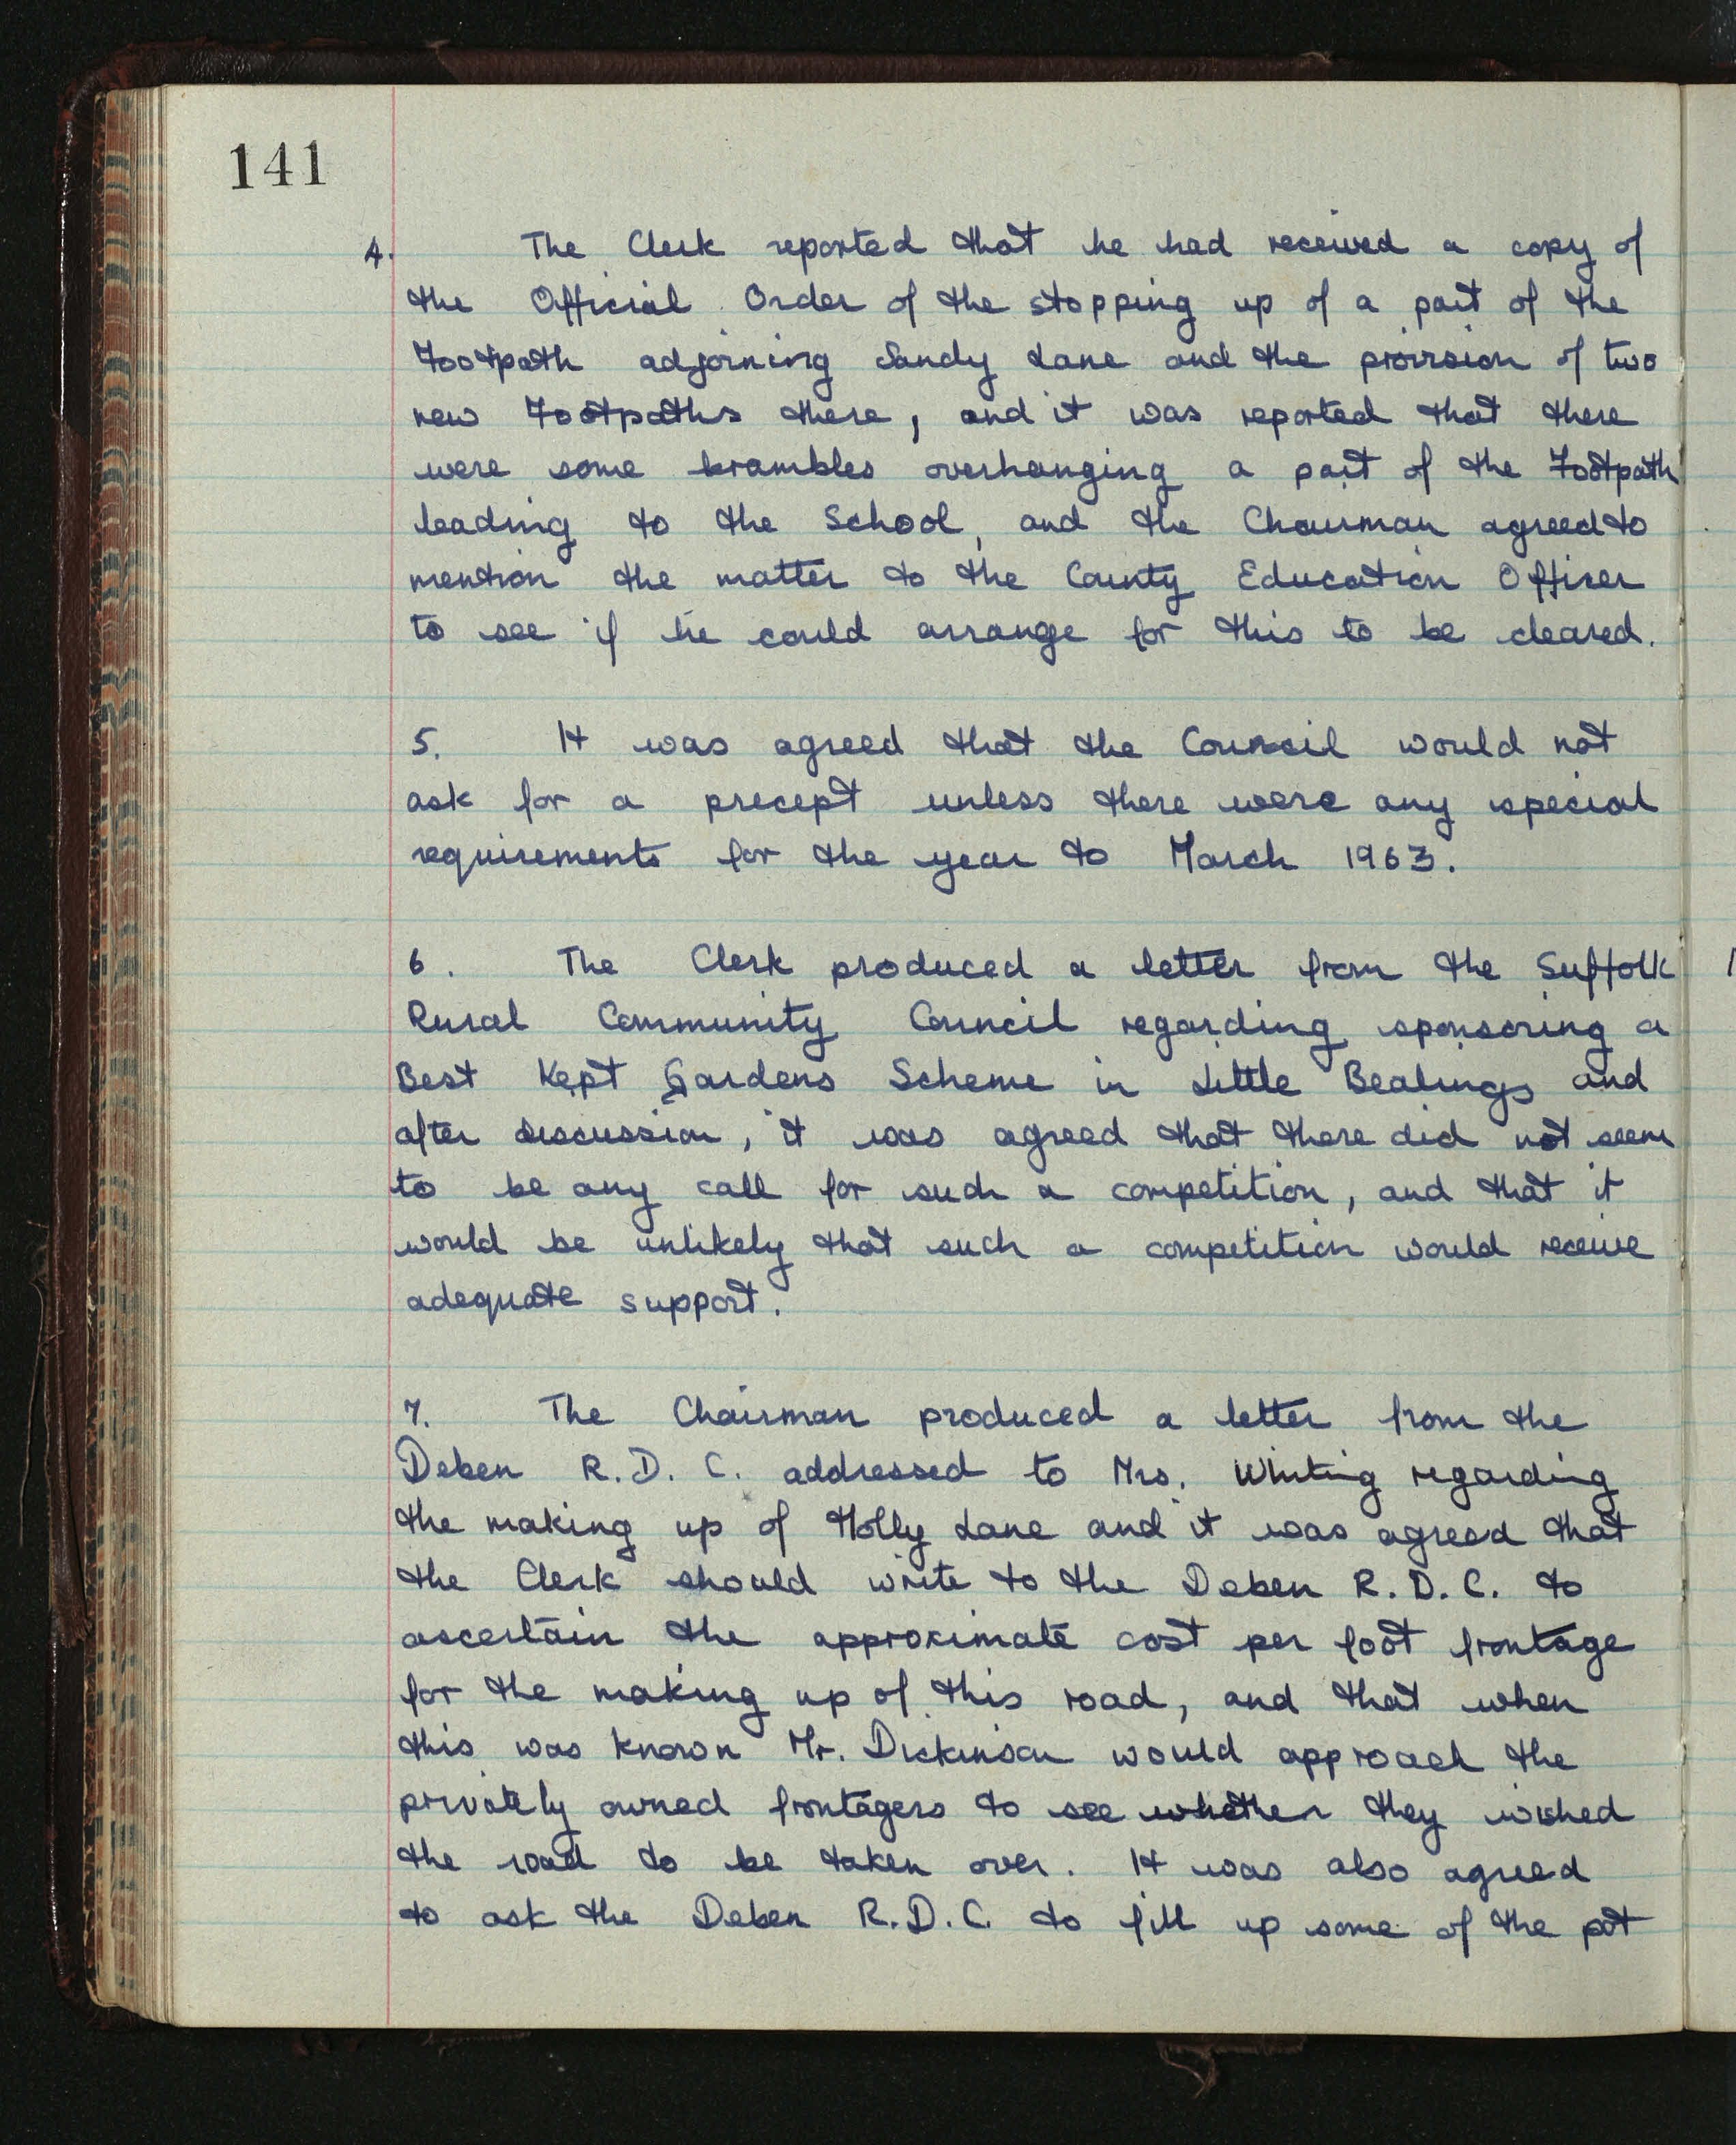 141
4. The Clerk reported that he had received a copy of
the Official Order of the stopping up of a part of the
Footpath adjoining Sandy Lane and the provision of two
new Footpaths there, and it was reported that there
were some brambles overhanging a part of the Footpath
leading to the School, and the Chairman agreed to
mention the matter to the County Education Officer
to see if he could arrange for this to be cleared.
5. It was agreed that the Council would not
ask for a precept unless there were any special
requirements for the year to March 1963.
6. The Clerk produced a letter from the Suffolk
Rural Community Council regarding sponsoring a
Best Kept Gardens Scheme in Little Bealings and
after discussion, it was agreed that there did not seem
to be any call for such a competition, and that it
would be unlikely that such a competition would receive
adequate support.
7. The Chairman produced a letter from the
Deben R.D.C. addressed to Mrs. Whiting regarding
the making up of Holly Lane and it was agreed that
the Clerk should write to the Deben R.D.C. to
ascertain the approximate cost per foot frontage
for the making up of this road, and that when
this was known Mr. Dickinson would approach the
privately owned frontagers to see whether they wished
the road to be taken over. It was also agreed
to ask the Deben R.D.C. to fill up some of the pot